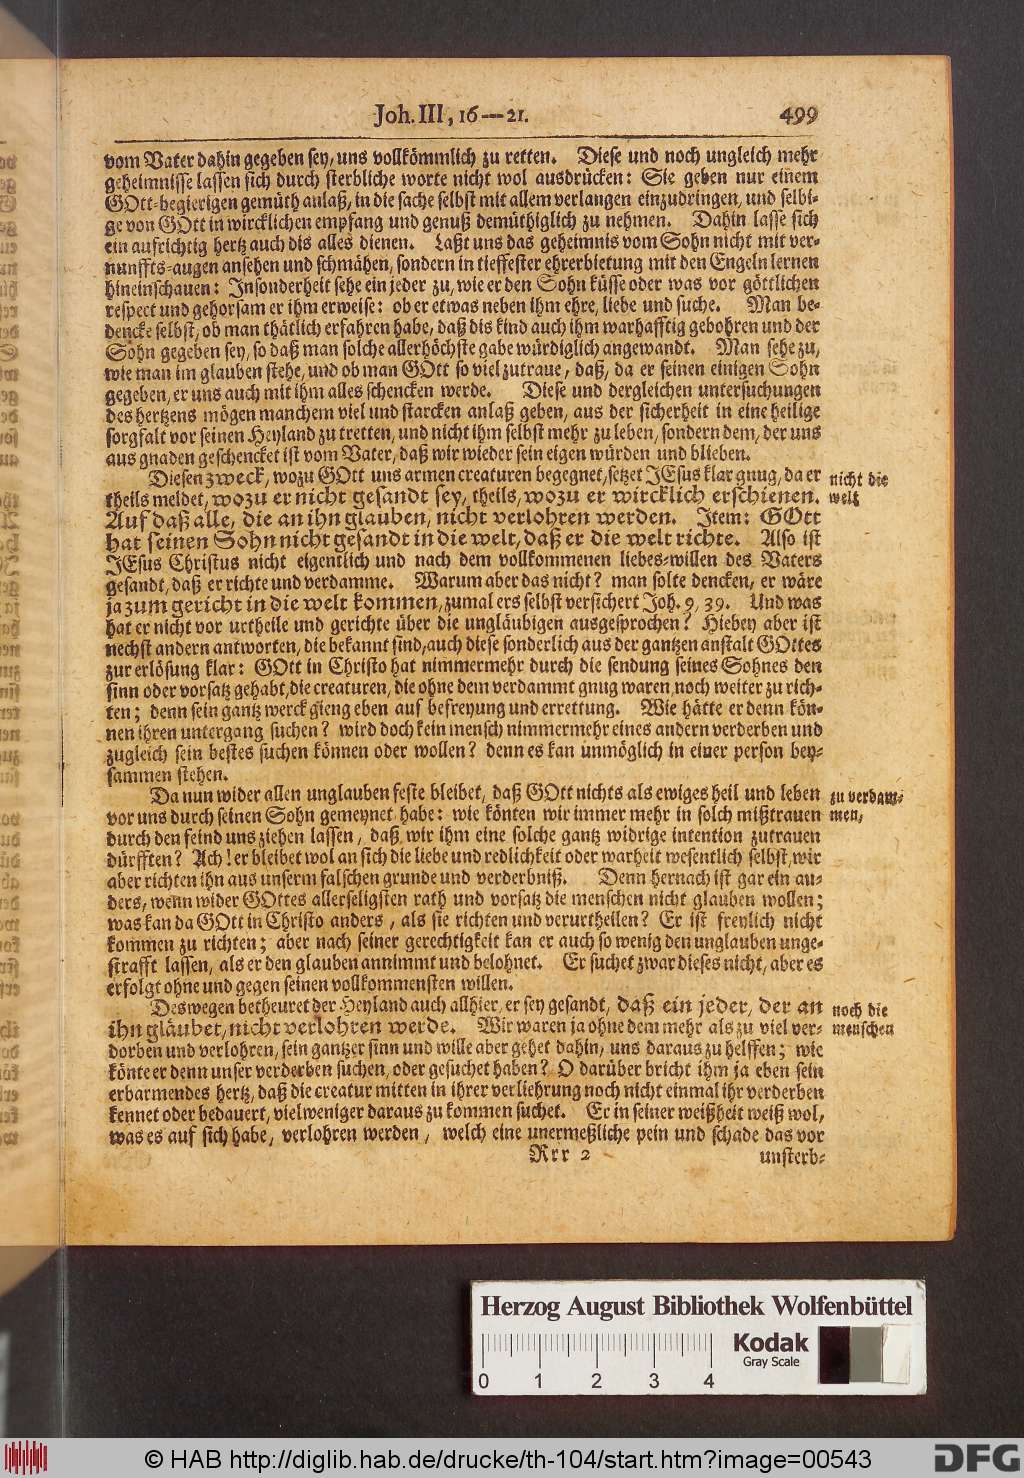 Joh. III, 16—21. 499
vom Vater dahin gegeben sey, uns vollkömmlich zu retten. Diese und noch ungleich mehr
geheimnisse lassen sich durch sterbliche worte nicht wol ausdrücken: Sie geben nur einem
GOtt-begierigen gemüth anlaß, in die sache selbst mit allem verlangen einzudringen, und selbi-
ge von GOtt in wircklichen empfang und genuß demüthiglich zu nehmen. Dahin lasse sich
ein aufrichtig hertz auch dis alles dienen. Laßt uns das geheimnis vom Sohn nicht mit ver-
nunffts-augen ansehen und schmähen, sondern in tieffester ehrerbietung mit den Engeln lernen
hineinschauen: Insonderheit sehe ein jeder zu, wie er den Sohn küsse oder was vor göttlichen
respect und gehorsam er ihm erweise: ob er etwas neben ihm ehre, liebe und suche. Man be-
dencke selbst, ob man thätlich erfahren habe, daß dis kind auch ihm warhafftig gebohren und der
Sohn gegeben sey, so daß man solche allerhöchste gabe würdiglich angewandt. Man sehe zu,
wie man im glauben stehe, und ob man GOtt so viel zutraue, daß, da er seinen einigen Sohn
gegeben, er uns auch mit ihm alles schencken werde. Diese und dergleichen untersuchungen
des hertzens mögen manchem viel und starcken anlaß geben, aus der sicherheit in eine heilige
sorgfalt vor seinen Heyland zu tretten, und nicht ihm selbst mehr zu leben, sondern dem, der uns
aus gnaden geschencket ist vom Vater, daß wir wieder sein eigen würden und blieben.
Diesen zweck, wozu GOtt uns armen creaturen begegnet, setzet JEsus klar gnug, da er nicht die
theils meldet, wozu er nicht gesandt sey, theils, wozu er wircklich erschienen. welt
Auf daß alle, die an ihn glauben, nicht verlohren werden. Item: GOtt
hat seinen Sohn nicht gesandt in die welt, daß er die welt richte. Also ist
JEsus Christus nicht eigentlich und nach dem vollkommenen liebes-willen des Vaters
gesandt, daß er richte und verdamme. Warum aber das nicht? man solte dencken, er wäre
ja zum gericht in die welt kommen, zumal ers selbst versichert Joh. 9, 39. Und was
hat er nicht vor urtheile und gerichte über die ungläubigen ausgesprochen? Hiebey aber ist
nechst andern antworten, die bekannt sind, auch diese sonderlich aus der gantzen anstalt GOttes
zur erlösung klar: GOtt in Christo hat nimmermehr durch die sendung seines Sohnes den
sinn oder vorsatz gehabt, die creaturen, die ohne dem verdammt gnug waren, noch weiter zu rich-
ten; denn sein gantz werck gieng eben auf befreyung und errettung. Wie hätte er denn kön-
nen ihren untergang suchen? wird doch kein mensch nimmermehr eines andern verderben und
zugleich sein bestes suchen können oder wollen? denn es kan unmöglich in einer person bey-
sammen stehen.
Da nun wider allen unglauben feste bleibet, daß GOtt nichts als ewiges heil und leben zu verdam-
vor uns durch seinen Sohn gemeynet habe: wie könten wir immer mehr in solch mißtrauen men,
durch den feind uns ziehen lassen, daß wir ihm eine solche gantz widrige intention zutrauen
dürfften? Ach! er bleibet wol an sich die liebe und redlichkeit oder warheit wesentlich selbst, wir
aber richten ihn aus unserm falschen grunde und verderbniß. Denn hernach ist gar ein an-
ders, wenn wider GOttes allerseligsten rath und vorsatz die menschen nicht glauben wollen;
was kan da GOtt in Christo anders, als sie richten und verurtheilen? Er ist freylich nicht
kommen zu richten; aber nach seiner gerechtigkeit kan er auch so wenig den unglauben unge-
strafft lassen, als er den glauben annimmt und belohnet. Er suchet zwar dieses nicht, aber es
erfolgt ohne und gegen seinen vollkommensten willen.
Deswegen betheuret der Heyland auch allhier, er sey gesandt, daß ein jeder, der an noch die
ihn gläubet, nicht verlohren werde. Wir waren ja ohne dem mehr als zu viel ver- menschen
dorben und verlohren, sein gantzer sinn und wille aber gehet dahin, uns daraus zu helffen; wie
könte er denn unser verderben suchen, oder gesuchet haben? O darüber bricht ihm ja eben sein
erbarmendes hertz, daß die creatur mitten in ihrer verliehrung noch nicht einmal ihr verderben
kennet oder bedauert, vielweniger daraus zu kommen suchet. Er in seiner weißheit weiß wol,
was es auf sich habe, verlohren werden, welch eine unermeßliche pein und schade das vor
Rrr 2 unsterb-
Herzog August Bibliothek Wolfenbüttel
Kodak
Gray Scale
0 1 2 3 4
© HAB http://diglib.hab.de/drucke/th-104/start.htm?image=00543
DFG